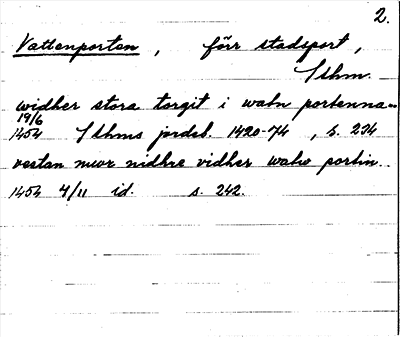 2.
Vattenporten, förr stadsport,
Sthm.
widher stora torgit i watn portenna
19/6
1454 Sthms jordeb. 1420-74, s. 234
vestan mwr nidhre vidher watn portin.
1454 4/11 id. s. 242.